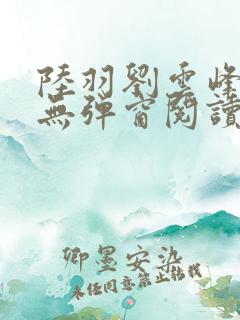 陸羽劉雲峰
無彈窗閱讀
卿墨安染
未经同意禁止转载